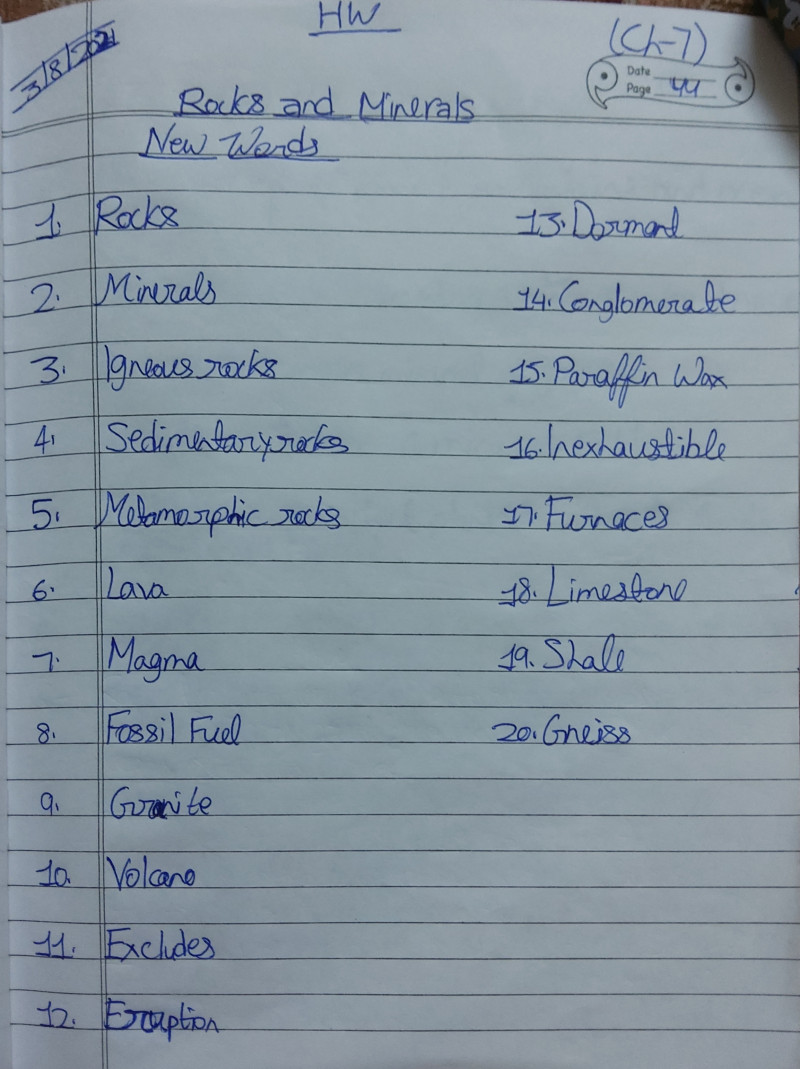 HW
3/8/2021
(Ch-7)
Date
Page 44
Rocks and Minerals
New Words
1. Rocks
2. Minerals
3. Igneous rocks
4. Sedimentary rocks
5. Metamorphic rocks
6. Lava
7. Magma
8. Fossil Fuel
9. Granite
10. Volcano
11. Excludes
12. Eruption
13. Dormant
14. Conglomerate
15. Paraffin Wax
16. Inexhaustible
17. Furnaces
18. Limestone
19. Shale
20. Gneiss